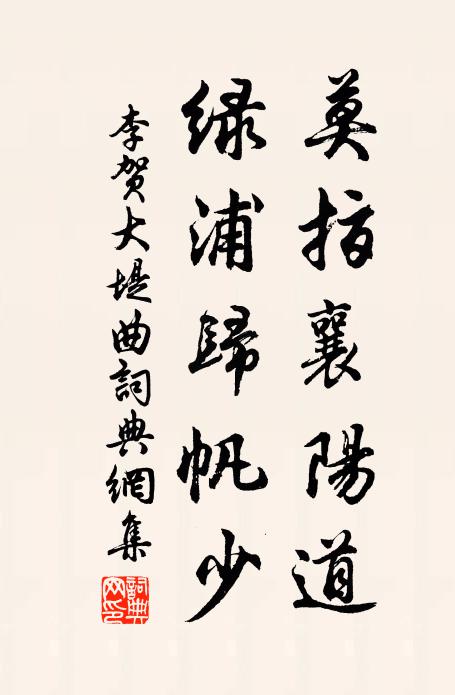 莫指襄陽道
绿浦歸帆少
李贺大堤曲詞典網集
詞典网印